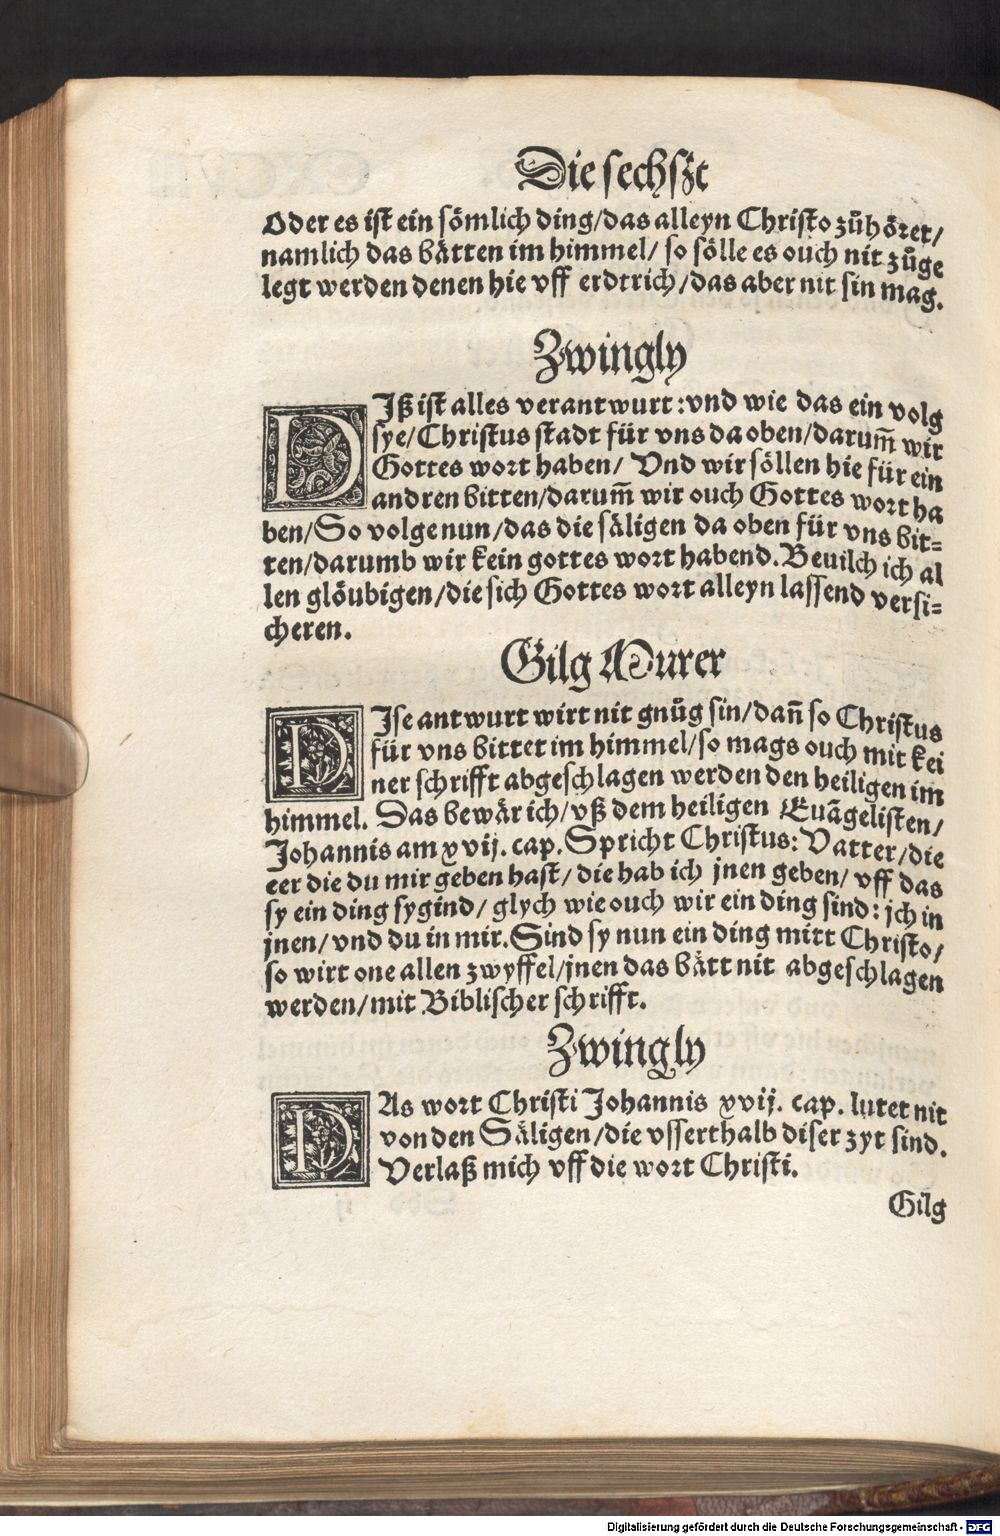 Die sechszt
Oder es ist ein sömlich ding/das alleyn Christo zůhöret/
namlich das bätten im himmel/ so sölle es ouch nit zůge
legt werden denen hie vff erdtrich/das aber nit sin mag.
Zwingly
DIß ist alles verantwurt: vnd wie das ein volg
sye/Christus stadt für vns da oben/darum̃ wir
Gottes wort haben/ Vnd wir söllen hie für ein
andren bitten/darum̃ wir ouch Gottes wort ha
ben/So volge nun/das die säligen da oben für vns bit=
ten/darumb wir kein gottes wort habend. Beuilch ich al
len glöubigen/die sich Gottes wort alleyn lassend versi=
cheren.
Gilg Murer
DIse antwurt wirt nit gnůg sin/dañ so Christus
für vns bittet im himmel/so mags ouch mit kei
ner schrifft abgeschlagen werden den heiligen im
himmel. Das bewär ich/vß dem heiligen Euãgelisten/
Johannis am xvij. cap. Spricht Christus: Vatter/die
eer die du mir geben hast/ die hab ich jnen geben/ vff das
sy ein ding sygind/ glych wie ouch wir ein ding sind: ich in
jnen/ vnd du in mir. Sind sy nun ein ding mitt Christo/
so wirt one allen zwyffel/jnen das bätt nit abgeschlagen
werden/mit Biblischer schrifft.
Zwingly
DAs wort Christi Johannis xvij. cap. lutet nit
von den Säligen/die vsserthalb diser zyt sind.
Verlaß mich vff die wort Christi.
Gilg
Digitalisierung gefördert durch die Deutsche Forschungsgemeinschaft - DFG